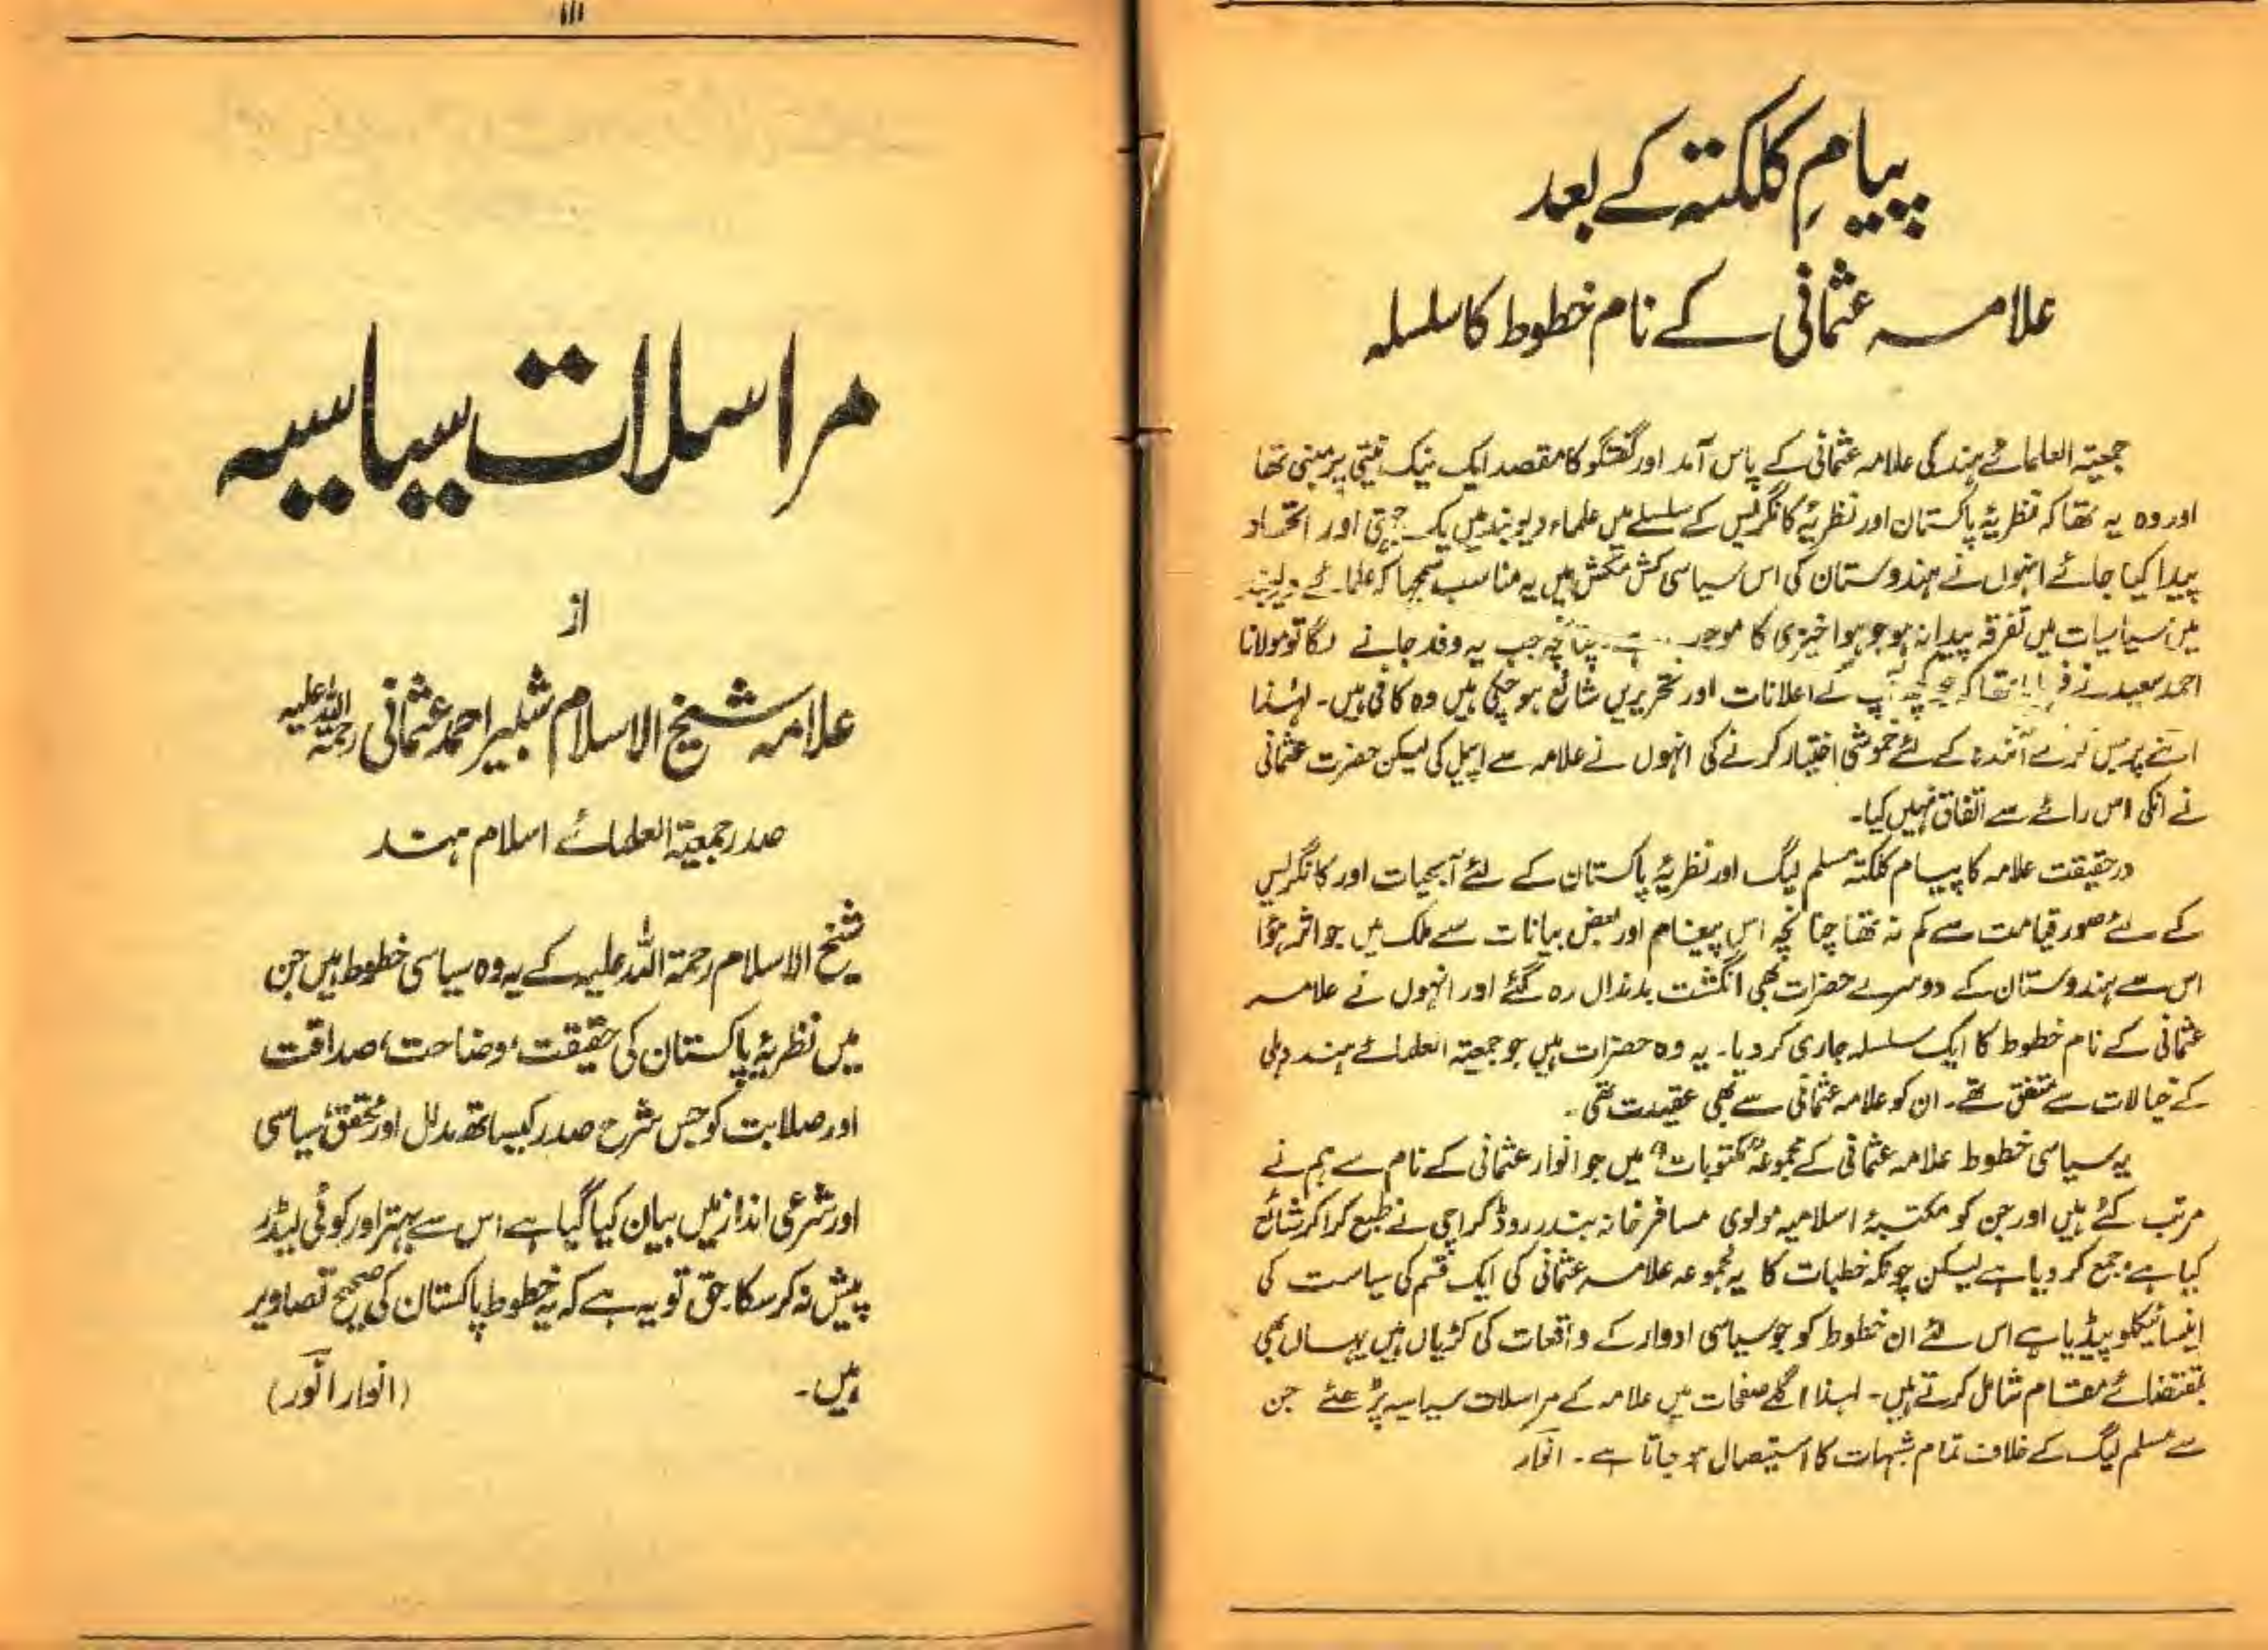 پیامِ کلکتہ کے بعد
علامہ عثمانی کے نام خطوط کا سلسلہ
جمعیتہ العلمائے ہند کی علامہ عثمانی کے پاس آمد اور گفتگو کا مقصد ایک نیک نیتی پر مبنی تھا
اور وہ یہ تھا کہ نظریۂ پاکستان اور نظریۂ کانگریس کے سلسلے میں علماء دیوبند میں یک جہتی اور اتحاد
پیدا کیا جائے انہوں نے ہندوستان کی اس سیاسی کش مکش میں یہ مناسب سمجھا کہ علمائے دیوبند
میں سیاسیات میں تفرقہ پیدا نہ ہو جو ہوا خیزی کا ہے۔ چنانچہ جب یہ وفد جانے لگا تو مولانا
احمد سعید نے فرمایا تھا کہ جو کچھ آپ کے اعلانات اور تحریریں شائع ہو چکی ہیں وہ کافی ہیں۔ لہٰذا
اتنے پر بس کرکے آئندہ کے لئے خموشی اختیار کرنے کی انہوں نے علامہ سے اپیل کی لیکن حضرت عثمانی
نے انکی اس رائے سے اتفاق نہیں کیا۔
درحقیقت علامہ کا پیام کلکتہ مسلم لیگ اور نظریۂ پاکستان کے لئے آبحیات اور کانگریس
کے لئے صور قیامت سے کم نہ تھا چنانچہ اس پیغام اور بعض بیانات سے ملک میں جو اثر ہؤا
اس سے ہندوستان کے دوسرے حضرات بھی انگشت بدنداں رہ گئے اور انہوں نے علامہ
عثمانی کے نام خطوط کا ایک سلسلہ جاری کر دیا۔ یہ وہ حضرات ہیں جو جمعیتہ العلمائے ہند دہلی
کے خیالات سے متفق تھے۔ ان کو علامہ عثمانی سے بھی عقیدت تھی۔
یہ سیاسی خطوط علامہ عثمانی کے مجموعہ "مکتوبات" میں جو انوار عثمانی کے نام سے ہم نے
مرتب کئے ہیں اور جن کو مکتبۂ اسلامیہ مولوی مسافر خانہ بندر روڈ کراچی نے طبع کرا کر شائع
کیا ہے، جمع کر دیا ہے لیکن چونکہ خطبات کا یہ مجموعہ علامہ عثمانی کی ایک قسم کی سیاست کی
انسائیکلوپیڈیا ہے اس لئے ان خطوط کو جو سیاسی ادوار کے واقعات کی کڑیاں ہیں یہاں بھی
بمقتضائے مقام شامل کرتے ہیں۔ لہذا اگلے صفحات میں علامہ کے مراسلات سیاسیہ پڑھئے جن
سے مسلم لیگ کے خلاف تمام شبہات کا استیصال ہو جاتا ہے۔ انوار
۱۱۱
مراسلات سیاسیہ
از
علامہ شیخ الاسلام شبیر احمد عثمانی رحمۃ اللہ علیہ
صدر جمعیۃ العلمائے اسلام ہند
شیخ الاسلام رحمۃ اللہ علیہ کے یہ وہ سیاسی خطوط ہیں جن
میں نظریۂ پاکستان کی حقیقت، وضاحت، صداقت
اور صلابت کو جس شرح صدر کیساتھ مدلل اور محقق، سیاسی
اور شرعی انداز میں بیان کیا گیا ہے اس سے بہتر اور کوئی لیڈر
پیش نہ کر سکا۔ حق تو یہ ہے کہ یہ خطوط پاکستان کی صحیح تصاویر
ہیں۔ (انوار انور)